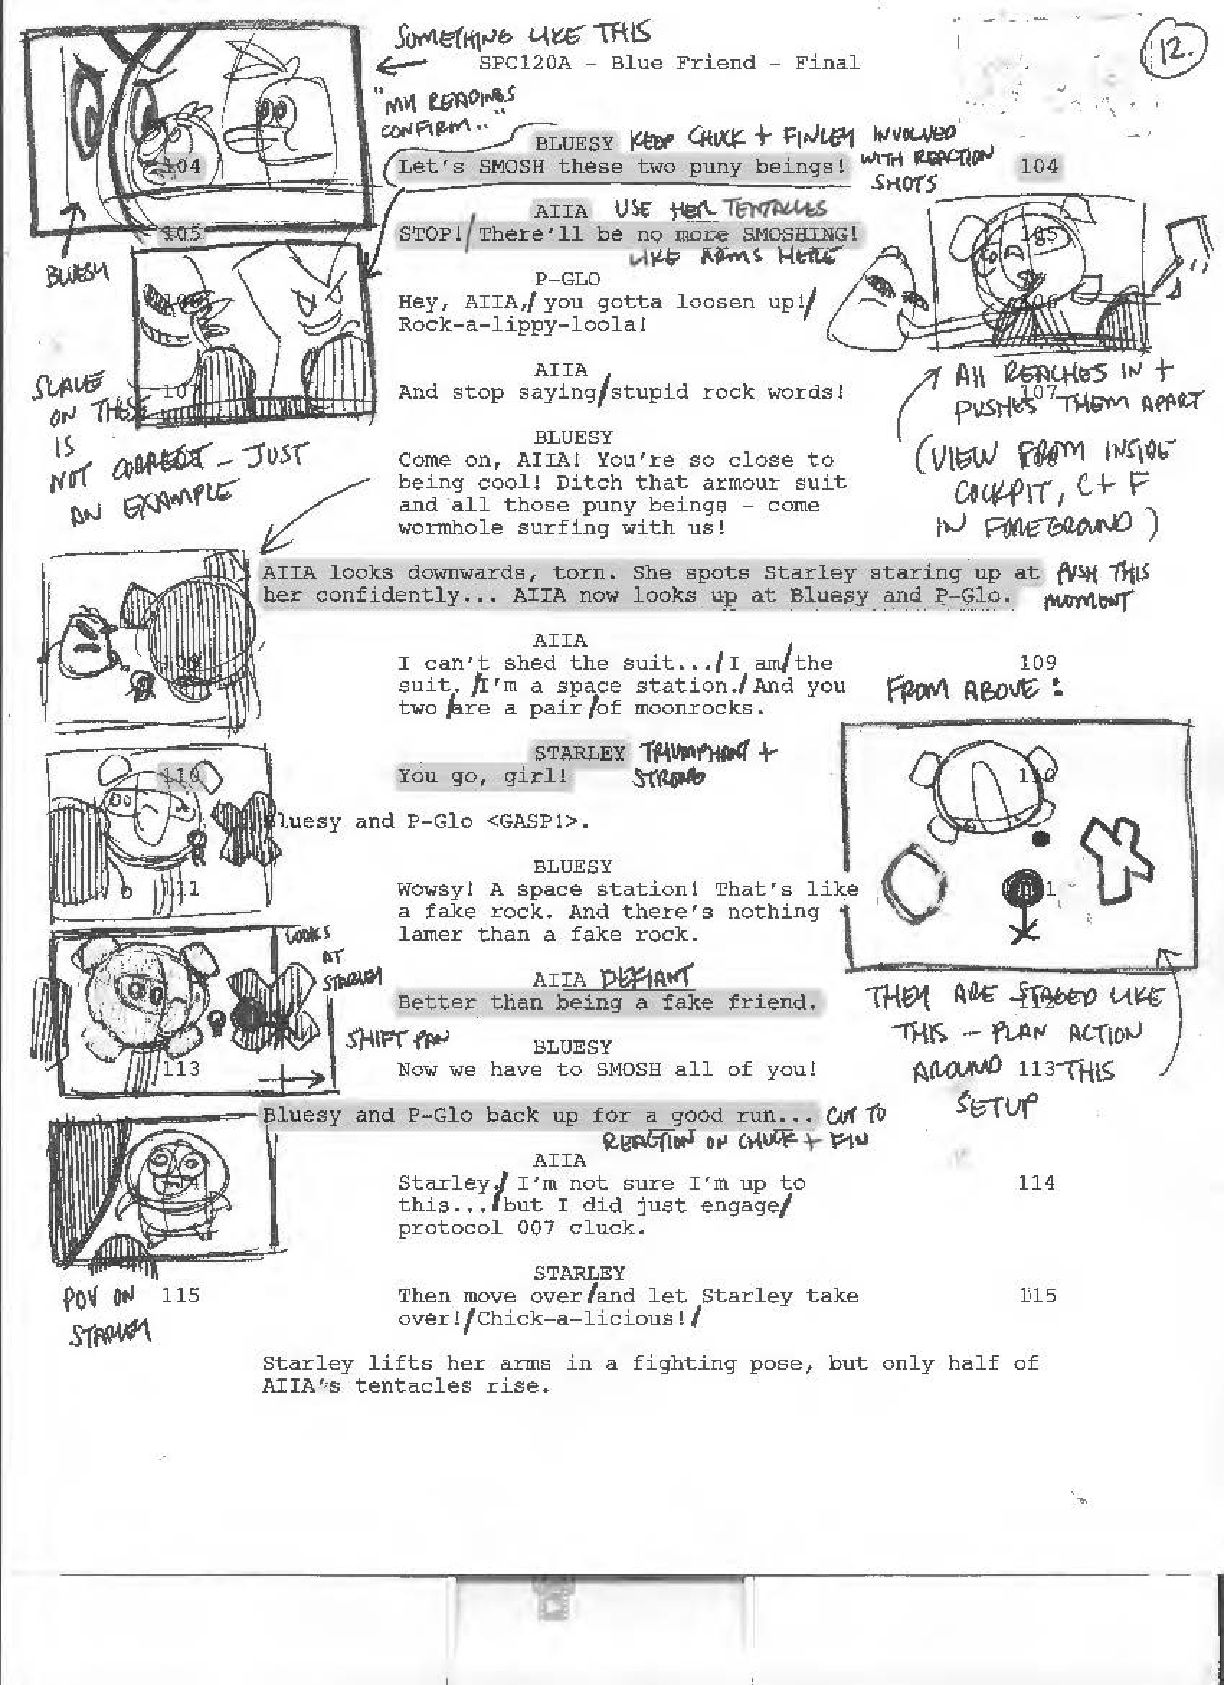 SOMETHING LIKE THIS
12.
SPC120A - Blue Friend - Final
"MY READINGS
CONFIRM.."
BLUESY KEEP CHUCK + FINLEY INVOLVED
WITH REACTION
SHOTS
104 Let's SMOSH these two puny beings! 104
AIIA USE HER TENTACLES
LIKE ARMS HERE
105 STOP!/There'll be no more SMOSHING! 105
BLUESY
P-GLO
Hey, AIIA,/you gotta loosen up!/ 106
Rock-a-lippy-loola!
AIIA
107 And stop saying/stupid rock words! 107
SCALE
ON THESE
IS
NOT CORRECT - JUST
AN EXAMPLE
AIIA REACHES IN +
PUSHES THEM APART
(VIEW FROM INSIDE
COCKPIT, C + F
IN FOREGROUND)
BLUESY
Come on, AIIA! You're so close to
being cool! Ditch that armour suit
and all those puny beings - come
wormhole surfing with us!
AIIA looks downwards, torn. She spots Starley staring up at
her confidently... AIIA now looks up at Bluesy and P-Glo.
PUSH THIS
MOMENT
AIIA
109 I can't shed the suit.../I am/the 109
suit. /I'm a space station./And you
two /are a pair/of moonrocks.
FROM ABOVE:
STARLEY TRIUMPHANT +
STRONG
110 You go, girl! 110
Bluesy and P-Glo <GASP!>.
BLUESY
111 Wowsy! A space station! That's like
a fake rock. And there's nothing
lamer than a fake rock.
LOOKS
AT
STARLEY
SHIFT PAN
AIIA DEFIANT
Better than being a fake friend.
THEY ARE STAGED LIKE
THIS - PLAN ACTION
AROUND THIS
SETUP
BLUESY
113 Now we have to SMOSH all of you! 113
Bluesy and P-Glo back up for a good run... CUT TO
REACTION ON CHUCK + FIN
AIIA
Starley,/I'm not sure I'm up to 114
this.../but I did just engage/
protocol 007 cluck.
STARLEY
115 Then move over/and let Starley take 115
over!/Chick-a-licious!/
POV ON
STARLEY
Starley lifts her arms in a fighting pose, but only half of
AIIA's tentacles rise.